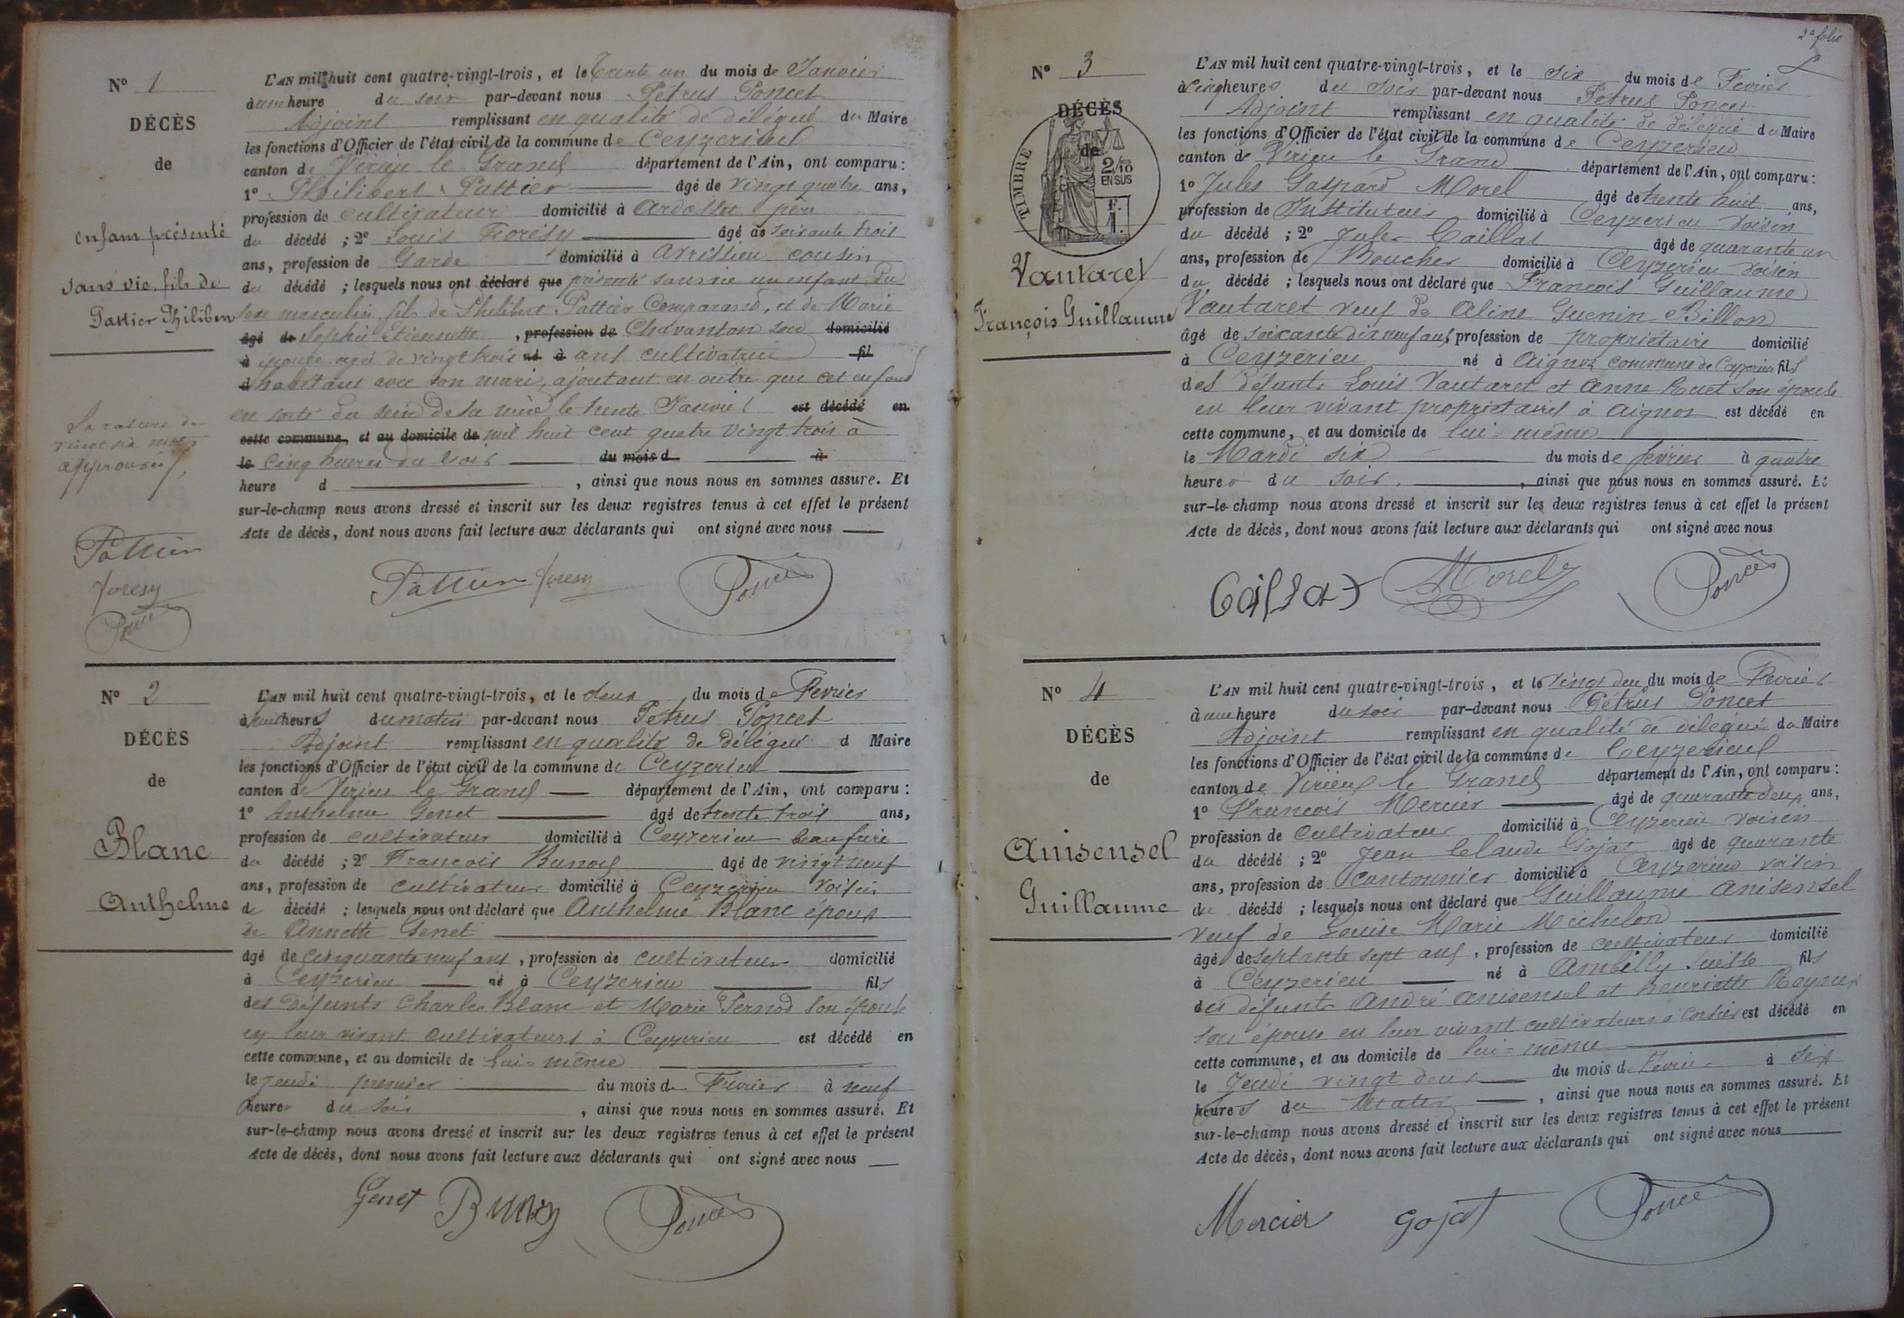 N° 1
DÉCÈS
de
enfant présenté
sans vie fils de
Pattier Philibert
La rature de
vingt six mots
approuvée
Pattier
Joresy
Poncet
L'AN mil huit cent quatre-vingt-trois, et le Trente un du mois de Janvier
à une heure du soir par-devant nous Pétrus Poncet
Adjoint remplissant en qualité de délégué du Maire
les fonctions d'Officier de l'état civil de la commune de Ceyzerieu
canton de Virieu le Grand département de l'Ain, ont comparu :
1° Philibert Pattier âgé de vingt quatre ans,
profession de cultivateur domicilié à Ardosset père
du décédé ; 2° Louis âgé de soixante trois
ans, profession de Garde domicilié à Avrissieu cousin
du décédé ; lesquels nous ont déclaré que présenté sans vie un enfant du
sexe masculin fils de Philibert Pattier Comparant, et de Marie
âgé de Sophie , profession de Chavanton son domicilié
à épouse agée de vingt trois né à ans cultivatrice fil
d habitant avec son mari, ajoutant en outre que cet enfant
est sorti du sein de sa mère le trente Janvier est décédé en
cette commune, et au domicile de mil huit cent quatre vingt trois à
le cinq heures du soir du mois d à
heure d , ainsi que nous nous en sommes assuré. Et
sur-le-champ nous avons dressé et inscrit sur les deux registres tenus à cet effet le présent
Acte de décès, dont nous avons fait lecture aux déclarants qui ont signé avec nous
Pattier Joresy Poncet
N° 2
DÉCÈS
de
Blanc
Anthelme
L'AN mil huit cent quatre-vingt-trois, et le deux du mois de Février
à heures du matin par-devant nous Pétrus Poncet
Adjoint remplissant en qualité de délégué d Maire
les fonctions d'Officier de l'état civil de la commune de Ceyzerieu
canton de Virieu le Grand département de l'Ain, ont comparu :
1° Anthelme Genet âgé de trente trois ans,
profession de cultivateur domicilié à Ceyzerieu beau frère
du décédé ; 2° François âgé de vingt neuf
ans, profession de cultivateur domicilié à Ceyzerieu voisin
de décédé ; lesquels nous ont déclaré que Anthelme Blanc époux
de Annette Genet
âgé de cinquante neuf ans, profession de cultivateur domicilié
à Ceyzerieu né à Ceyzerieu fils
des défunts Charles Blanc et Marie Pernod son épouse
en leur vivant cultivateurs à Ceyzerieu est décédé en
cette commune, et au domicile de lui-même
le jeudi premier du mois de Février à neuf
heures du soir , ainsi que nous nous en sommes assuré. Et
sur-le-champ nous avons dressé et inscrit sur les deux registres tenus à cet effet le présent
Acte de décès, dont nous avons fait lecture aux déclarants qui ont signé avec nous
Genet Poncet
2e folio
N° 3
DÉCÈS
de
TIMBRE
2/10
EN SUS
F.
1.
Vautaret
François Guillaume
L'AN mil huit cent quatre-vingt-trois, et le six du mois de Février
à cinq heures du soir par-devant nous Pétrus Poncet
Adjoint remplissant en qualité de délégué du Maire
les fonctions d'Officier de l'état civil de la commune de Ceyzerieu
canton de Virieu le Grand département de l'Ain, ont comparu :
1° Jules Gaspard Morel âgé de trente huit ans,
profession de Instituteur domicilié à Ceyzerieu voisin
du décédé ; 2° Jules Caillat âgé de quarante un
ans, profession de Boucher domicilié à Ceyzerieu voisin
du décédé ; lesquels nous ont déclaré que François Guillaume
Vautaret veuf de Aline Guenin-Billon
âgé de soixante dix neuf ans profession de propriétaire domicilié
à Ceyzerieu né à Aignoz commune de Ceyzerieu fils
des défunts Louis Vautaret et Anne Ruet son épouse
en leur vivant propriétaires à Aignoz est décédé en
cette commune, et au domicile de lui-même
le Mardi six du mois de février à quatre
heures du soir , ainsi que nous nous en sommes assuré. Et
sur-le-champ nous avons dressé et inscrit sur les deux registres tenus à cet effet le présent
Acte de décès, dont nous avons fait lecture aux déclarants qui ont signé avec nous
Caillat Morel Poncet
N° 4
DÉCÈS
de
Anisensel
Guillaume
L'AN mil huit cent quatre-vingt-trois, et le vingt deux du mois de Février
à une heure du soir par-devant nous Pétrus Poncet
Adjoint remplissant en qualité de délégué du Maire
les fonctions d'Officier de l'état civil de la commune de Ceyzerieu
canton de Virieu le Grand département de l'Ain, ont comparu :
1° François Mercier âgé de quarante deux ans,
profession de cultivateur domicilié à Ceyzerieu voisin
du décédé ; 2° Jean Claude Gojat âgé de quarante
ans, profession de cantonnier domicilié à Ceyzerieu voisin
du décédé ; lesquels nous ont déclaré que Guillaume Anisensel
veuf de Louise Marie Michelon
âgé de septante sept ans, profession de cultivateur domicilié
à Ceyzerieu né à Ambilly Suisse fils
des défunts André Anisensel et Henriette
son épouse en leur vivant cultivateurs à Corsier est décédé en
cette commune, et au domicile de lui-même
le Jeudi vingt deux du mois de Février à six
heures du Matin , ainsi que nous nous en sommes assuré. Et
sur-le-champ nous avons dressé et inscrit sur les deux registres tenus à cet effet le présent
Acte de décès, dont nous avons fait lecture aux déclarants qui ont signé avec nous
Mercier Gojat Poncet